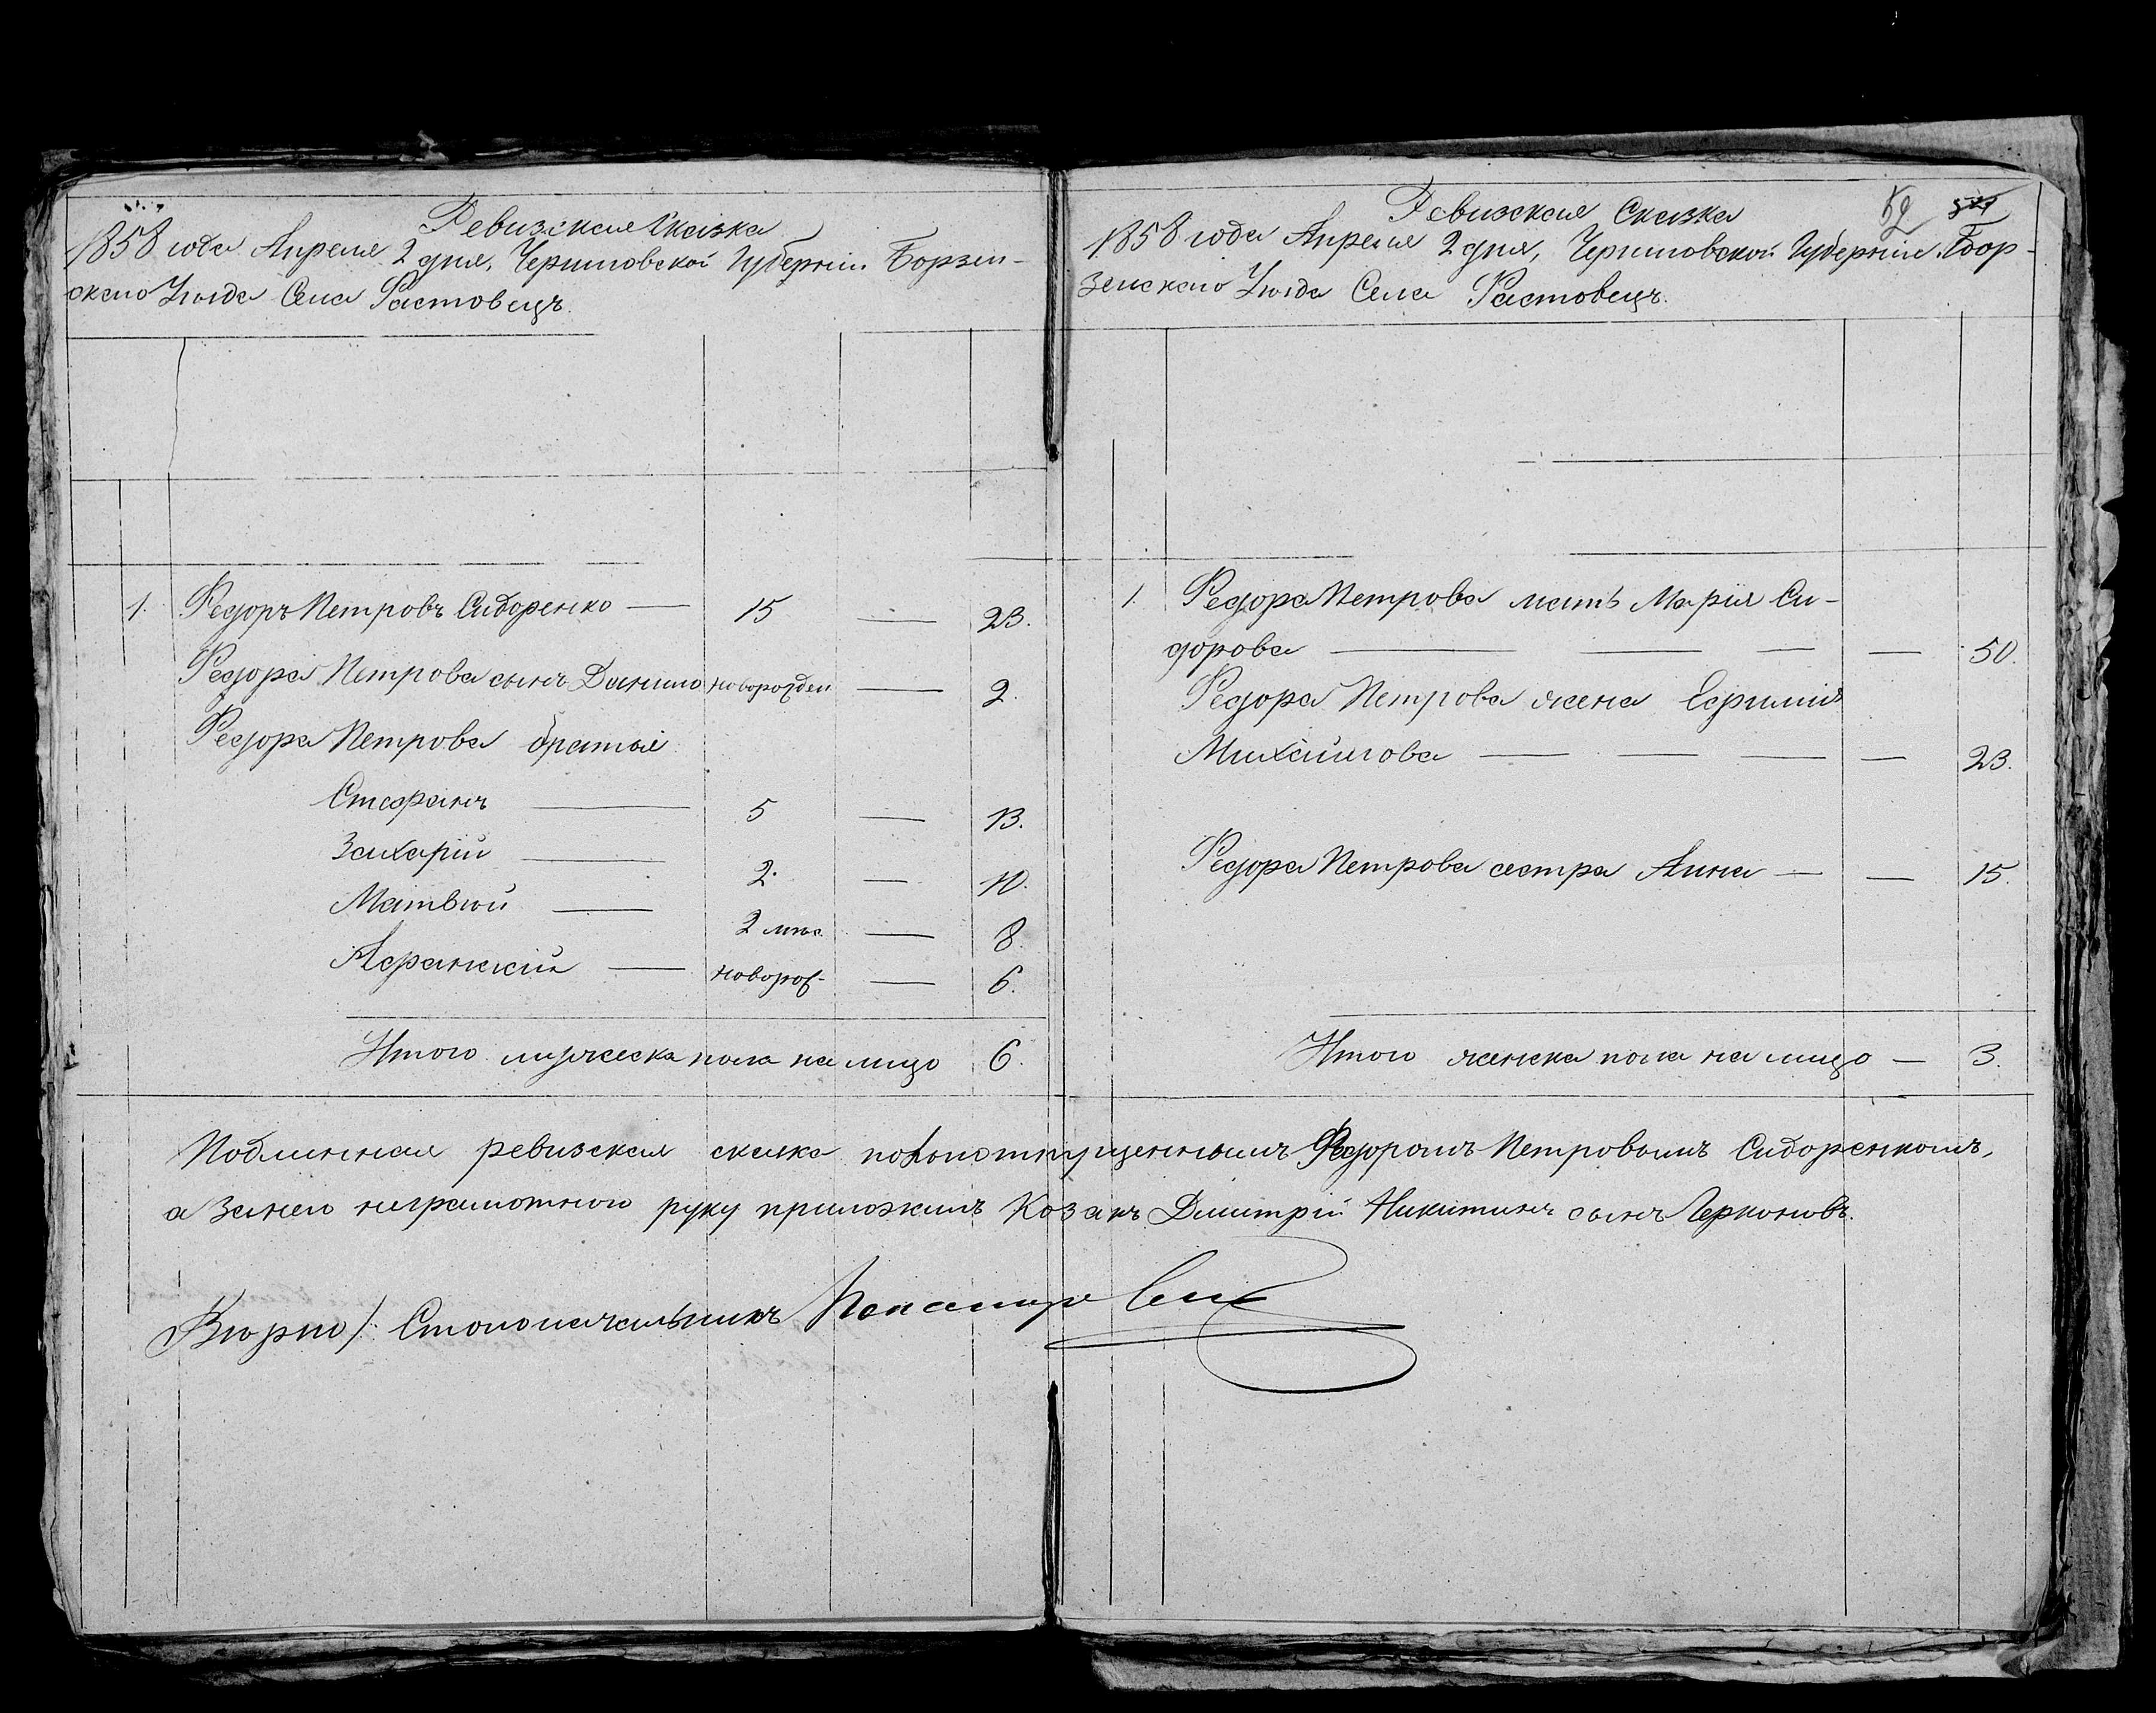 Ревизская Сказка
1858 года Апреля 2 дня, Черниговской Губерніи Борзен-
скаго Уѣзда Села Растовецъ.
1. Федоръ Петровъ Сидоренко — 15 — 23.
Федора Петрова сынъ Данило новорожден — 2.
Федора Петрова братья
Стефанъ — 5 — 13.
Захарій — 2. — 10.
Матвѣй — 2 мѣс. — 8.
Афанасій — новорож- — 6.
Итого мужеска пола на лицо 6.
Ревизская Сказка
1858 года Апреля 2 дня, Черниговской Губерніи Бор-
зенскаго Уѣзда Села Растовецъ.
1. Федора Петрова мать Марія Си-
дорова — — — — 50.
Федора Петрова жена Ефимія
Михайлова — — — — 23.
Федора Петрова сестра Анна — — 15.
Итого женска пола на лицо — 3.
Подлинная ревизская скаска Федоромъ Петровымъ Сидоренкомъ,
а Занего неграмотного руку приложилъ Козакъ Дмитрій Никитинъ сынъ
Вѣрно: Столоначальникъ